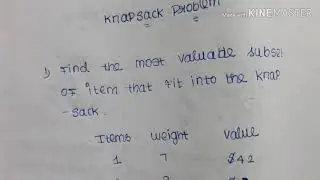 Knapsack Problem
Made with KINEMASTER
1) Find the most valuable subset
of item that fit into the knap
-sack.
Items weight value
1 7 $42